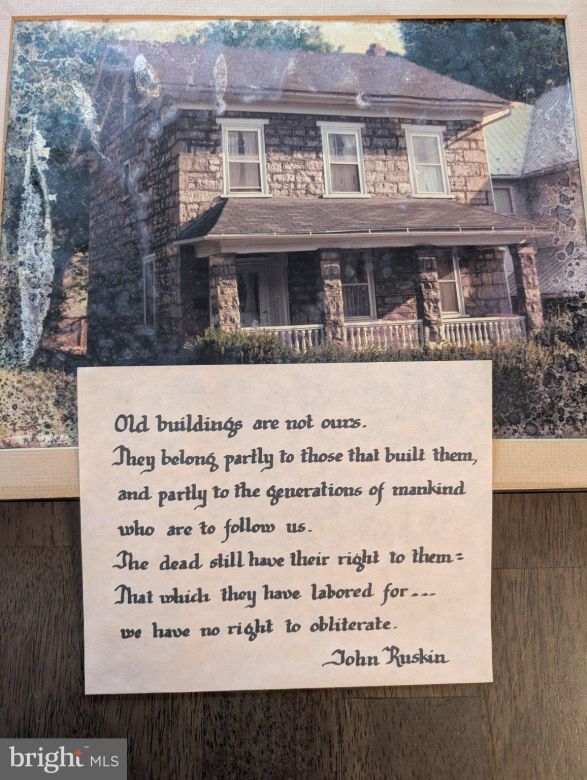 Old buildings are not ours.
They belong partly to those that built them,
and partly to the generations of mankind
who are to follow us.
The dead still have their right to them=
That which they have labored for...
we have no right to obliterate.
John Ruskin
bright MLS